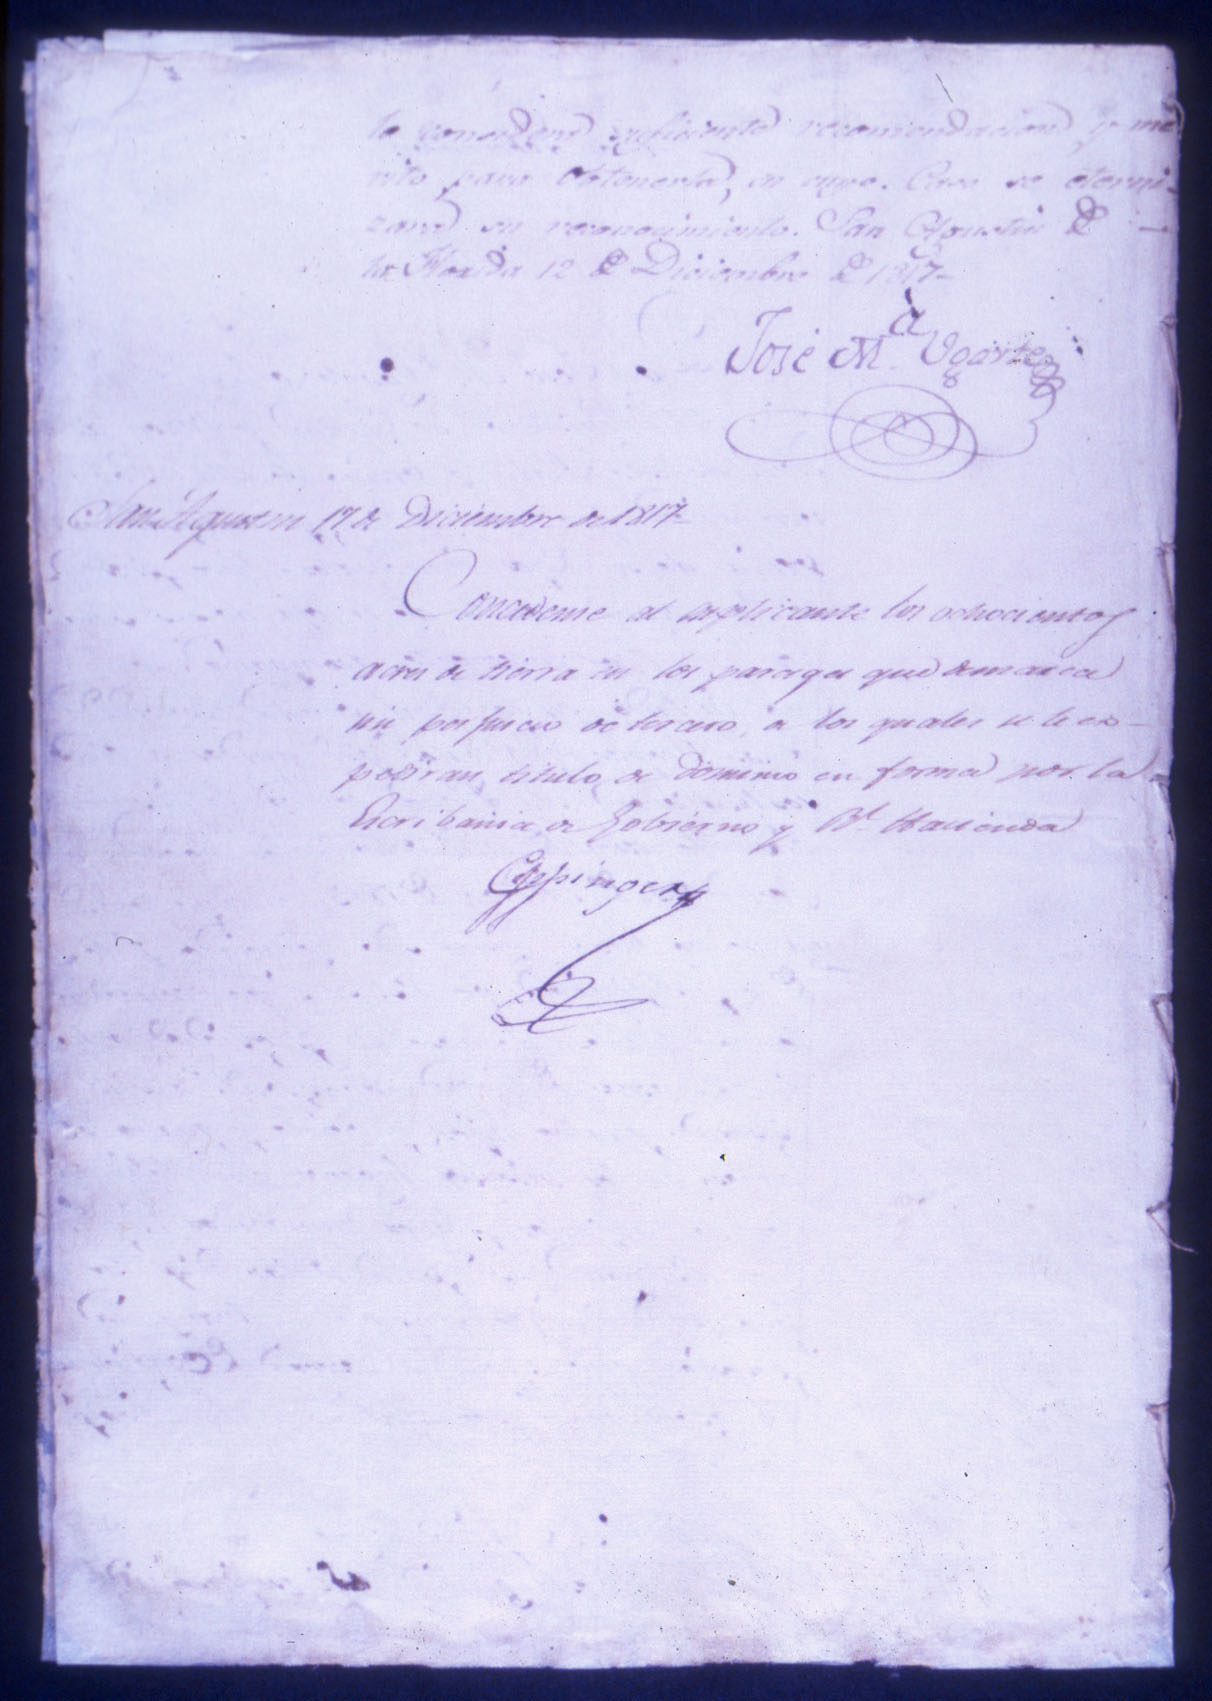 la considera suficiente recomendacion, y me
rito para obtenerla, en cuyo. Caso se eterni-
zará su reconocimiento. San Agustin de
la Florida 12 de Diciembre de 1817-
José M.a Ugarte
San Agustin 17 de Diciembre de 1817-
Concedense al suplicante los ochocientos
acres de tierra en los parages que demarca
sin perjuicio de tercero, a los quales se le ex-
pediran titulo de dominio en forma por la
Escribania de Gobierno y Rl. Hacienda
Coppinger